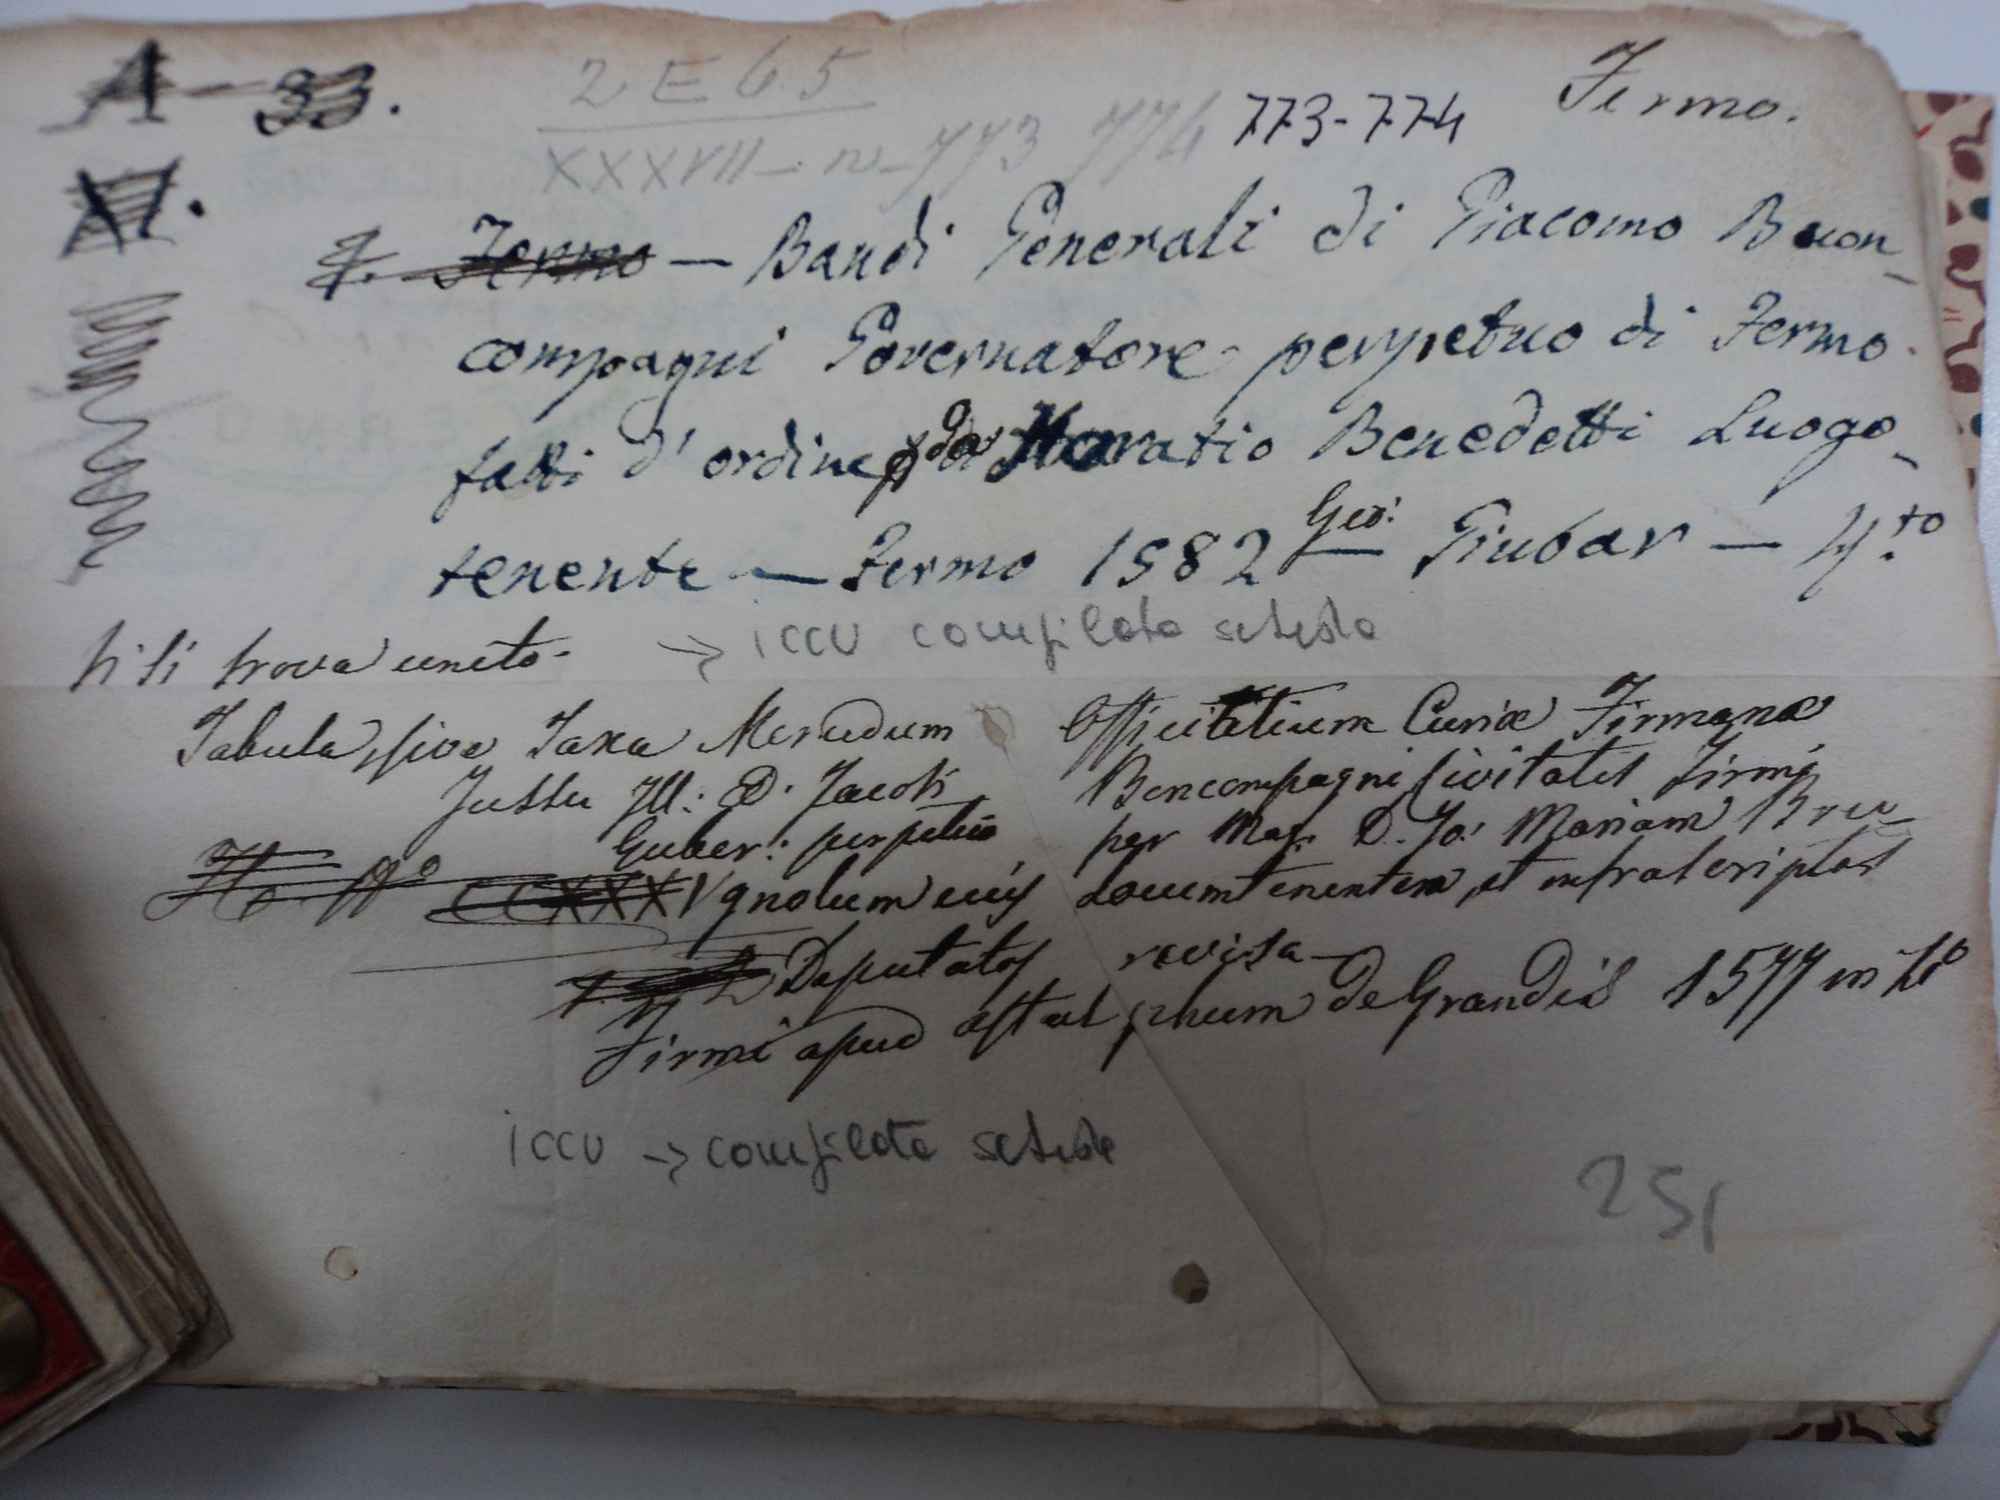 A - 33.
2 E 65
XXXVII - n - 773 774
773-774
Fermo.
XI.
F. Fermo — Bandi Generali di Giacomo Buon-
compagni Governatore perpetuo di Fermo
fatti d'ordine da Horatio Benedetti Luogo-
tenente — Fermo 1582 Geo: Giubar — 4.to
Vi si trova unito.
→ iccu compilata scheda
Tabula, sive Taxa Mercedum Officialium Curiæ Firmanæ
Jussu Ill: D. Jacobi Boncompagni Civitatis Firmi
Guber: perpetuo per Mag. D. Jo: Mariam Bru-
CCXXXV gnolum eius Locumtenentem, et infrascriptos
Deputatos revisa —
Firmi apud Astulphum de Grandis 1577 in 4º
iccu → compilata scheda
251